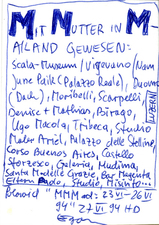 MIT MUTTER IN M-
AILAND GEWESEN:
Scala-Museum / Vigevano / Nam
June Paik (Palazzo Reale), Duomo
(Dach), Moribelli, Scarpelli,
Denise + Mathian, Birago,
Ugo Macola, Tribeca, Studio
Mabr Ariel, Palazzo delle Stelline
Corso Buenos Aires, Castello
Sforzesco, Galeria, Mudima,
Santa Madelle Grazie, Bar Magenta
Eltern Pado, Studie, Misinto...
"MMM" ed: 23 VI - 26 VI
94" 27 VI 94 HD
LUZERN